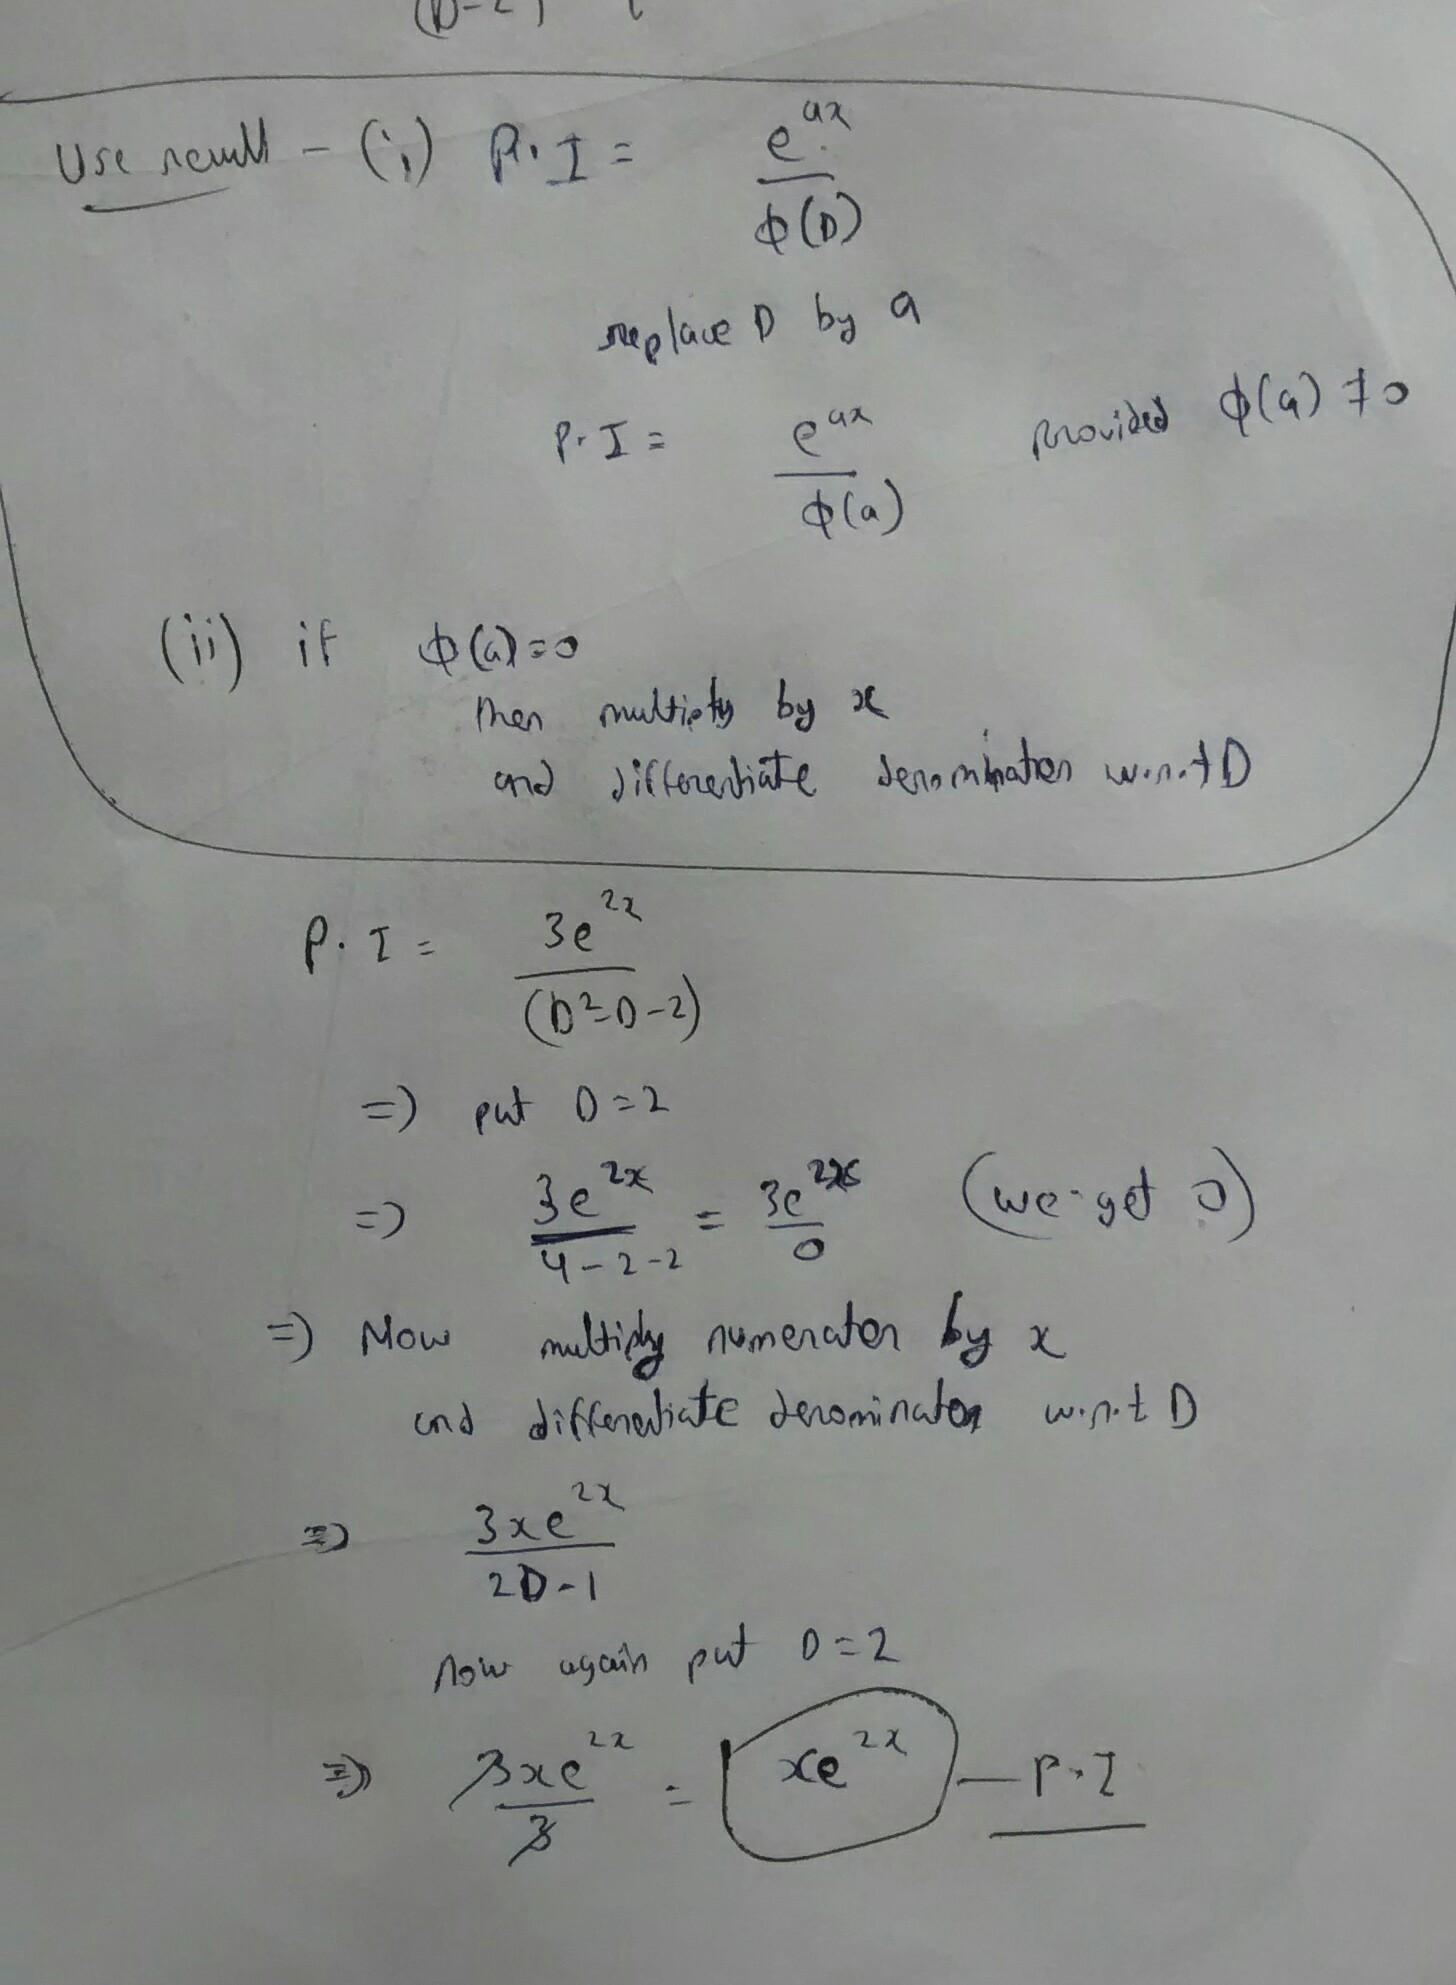 Use result - (i) P.I = e^{ax} / φ(D)
replace D by a
P.I = e^{ax} / φ(a) provided φ(a) ≠ 0
(ii) if φ(a) = 0
then multiply by x
and differentiate denominator w.r.t D
P.I = 3e^{2x} / (D²-D-2)
=) put D=2
=) 3e^{2x} / 4-2-2 = 3e^{2x} / 0 (we get 0)
=) Now multiply numerator by x
and differentiate denominator w.r.t D
=) 3xe^{2x} / 2D-1
Now again put D=2
=) 3xe^{2x} / 3 = xe^{2x} — P.I